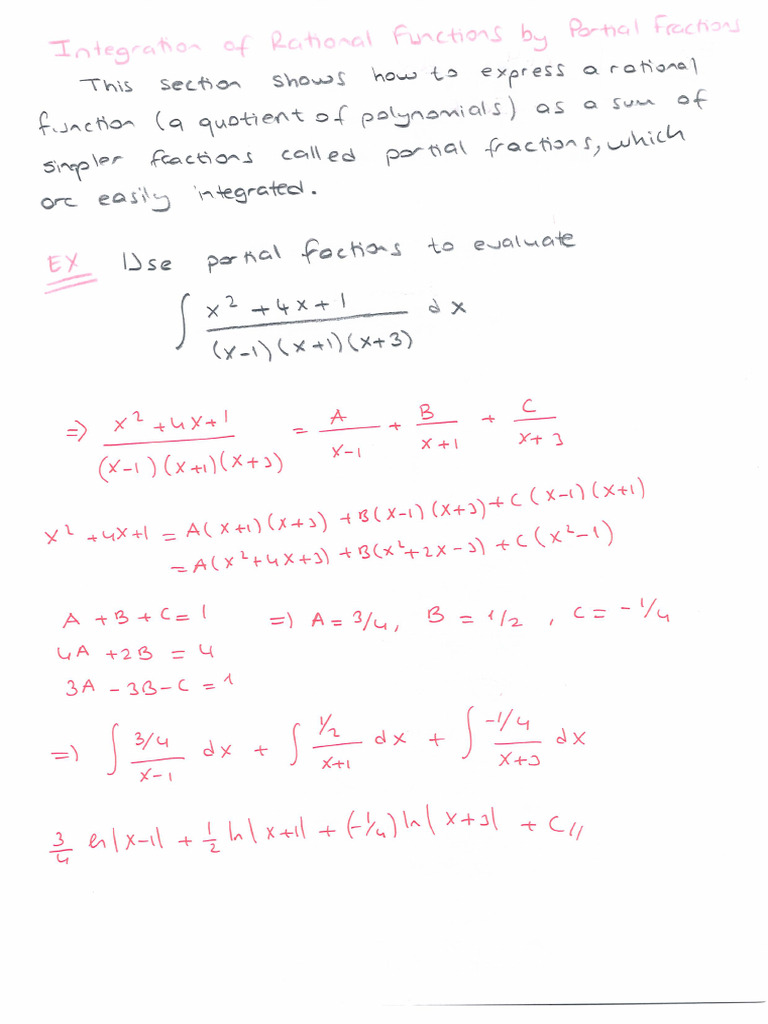 Integration of Rational Functions by Partial Fractions
This section shows how to express a rational
function (a quotient of polynomials) as a sum of
simpler fractions called partial fractions, which
are easily integrated.
EX Use partial factions to evaluate
∫ (x² + 4x + 1) / ((x-1)(x+1)(x+3)) dx
⇒ (x² + 4x + 1) / ((x-1)(x+1)(x+3)) = A/(x-1) + B/(x+1) + C/(x+3)
x² + 4x + 1 = A(x+1)(x+3) + B(x-1)(x+3) + C(x-1)(x+1)
= A(x² + 4x + 3) + B(x² + 2x - 3) + C(x² - 1)
A + B + C = 1 ⇒ A = 3/4, B = 1/2, C = -1/4
4A + 2B = 4
3A - 3B - C = 1
⇒ ∫ (3/4)/(x-1) dx + ∫ (1/2)/(x+1) dx + ∫ (-1/4)/(x+3) dx
3/4 ln|x-1| + 1/2 ln|x+1| + (-1/4) ln|x+3| + C //